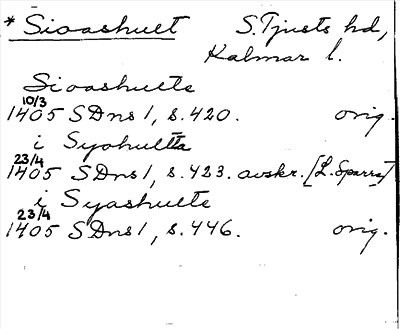 * Sioashult S. Tjusts hd,
Kalmar l.
Sioashulte
10/3
1405 SDns 1, s. 420. orig.
i Syohultta
23/4
1405 SDns 1, s. 423. avskr. [L. Sparre]
i Syashulte
23/4
1405 SDns 1, s. 446. orig.